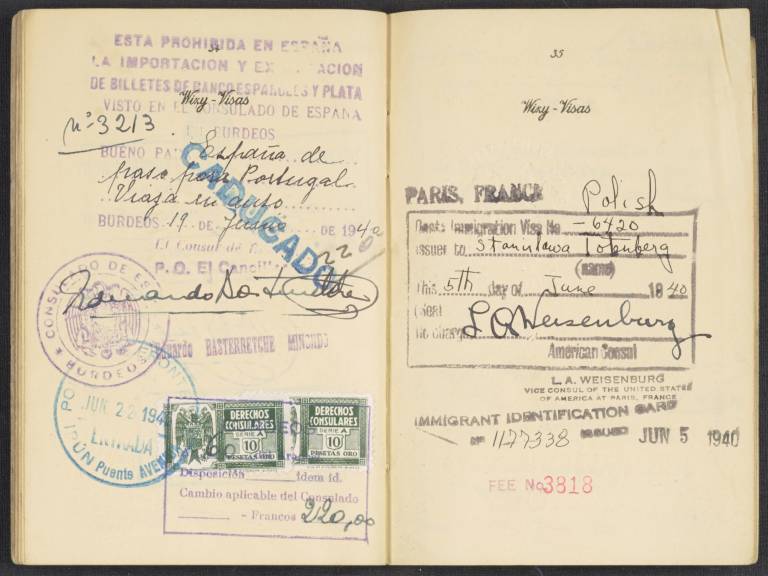 34
ESTA PROHIBIDA EN ESPAÑA
LA IMPORTACION Y EXPORTACION
DE BILLETES DE BANCO ESPAÑOLES Y PLATA
Wizy-Visas
VISTO EN EL CONSULADO DE ESPAÑA
nº 3213
BURDEOS
BUENO PARA España de
paso para Portugal
Viaja en auto
BURDEOS 19 DE Junio DE 1940
CADUCADO
El Consul de
P.O. El Canciller
22
CONSULADO DE ESPAÑA
BURDEOS
BASTERRETCHE
JUN 22 194
ENTRADA
IRÚN Puente AVENIDA
DERECHOS
CONSULARES
SERIE A
10
PESETAS ORO
DERECHOS
CONSULARES
SERIE A
10
PESETAS ORO
Disposición idem id.
Cambio aplicable del Consulado
- Francos 220,00
35
Wizy-Visas
PARIS, FRANCE
Polish
Immigration Visa No -6420
issuer to Stanislawa Totenberg
(name)
this 5th day of June 1940
(Seal
L A Weisenburg
American Consul
L.A. WEISENBURG
VICE CONSUL OF THE UNITED STATES
OF AMERICA AT PARIS, FRANCE
IMMIGRANT IDENTIFICATION CARD
Nº 1177338 ISSUED JUN 5 1940
FEE No.3818